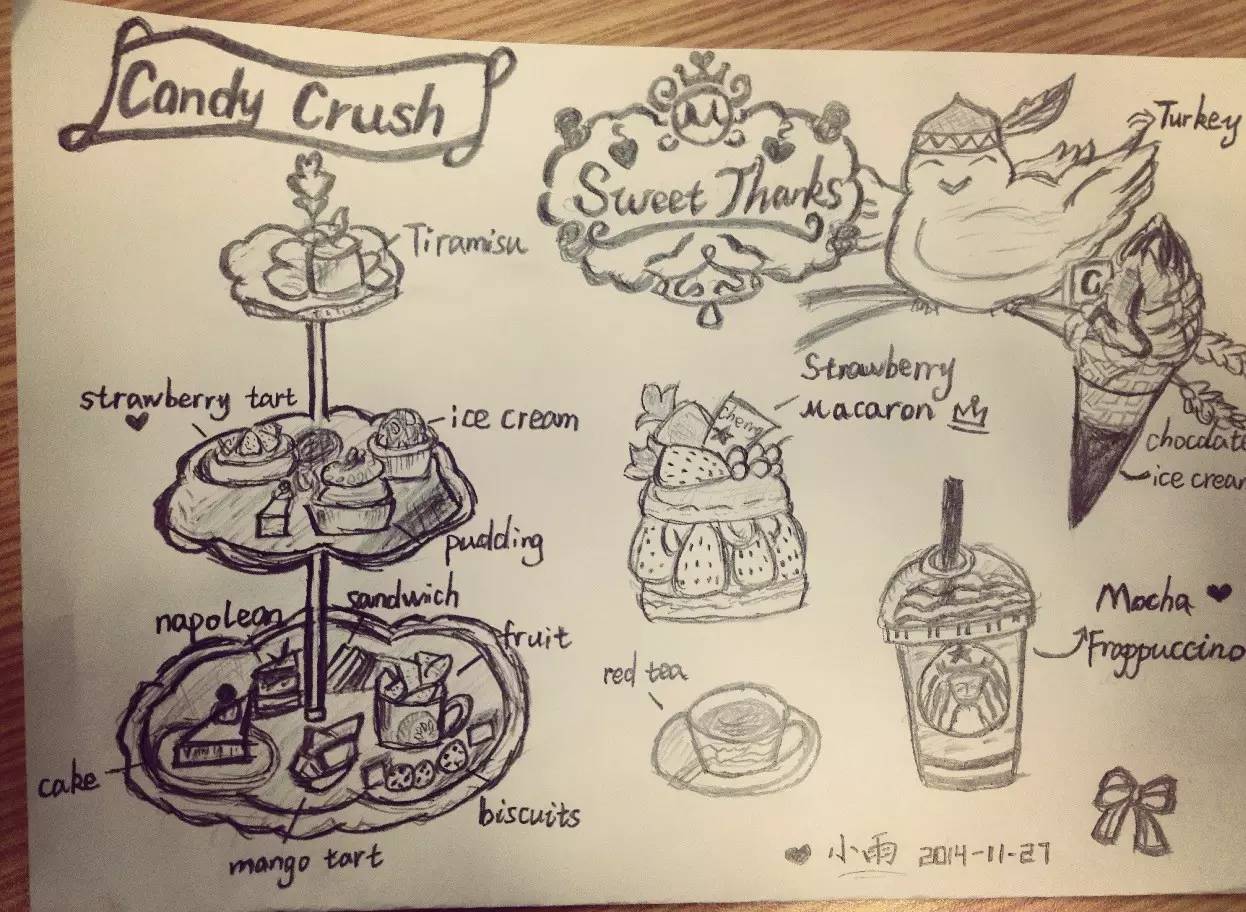 Candy Crush
M
Sweet Thanks
Turkey
Tiramisu
G
strawberry tart
ice cream
Strawberry
Macaron
Cherry
chocolate
ice cream
pudding
napolean
sandwich
fruit
Mocha
Frappuccino
red tea
cake
biscuits
mango tart
小雨 2014-11-27